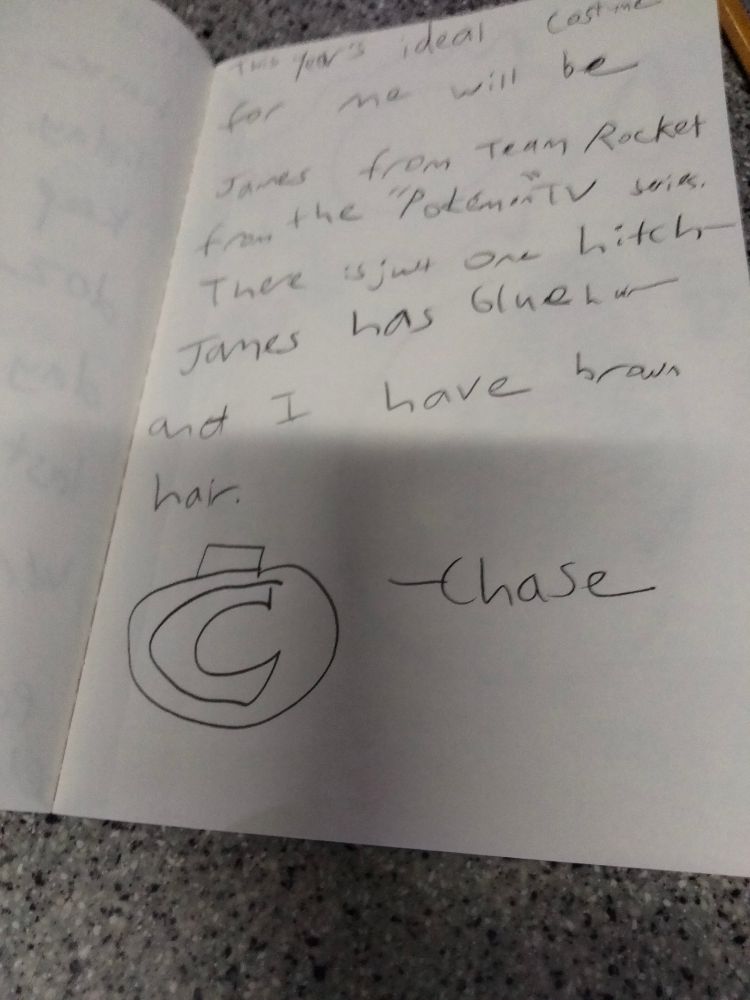 This Year's ideal costume
for me will be
James from Team Rocket
from the "Pokémon" TV series.
There is just one hitch-
James has blue hair
and I have brown
hair.
C
-Chase